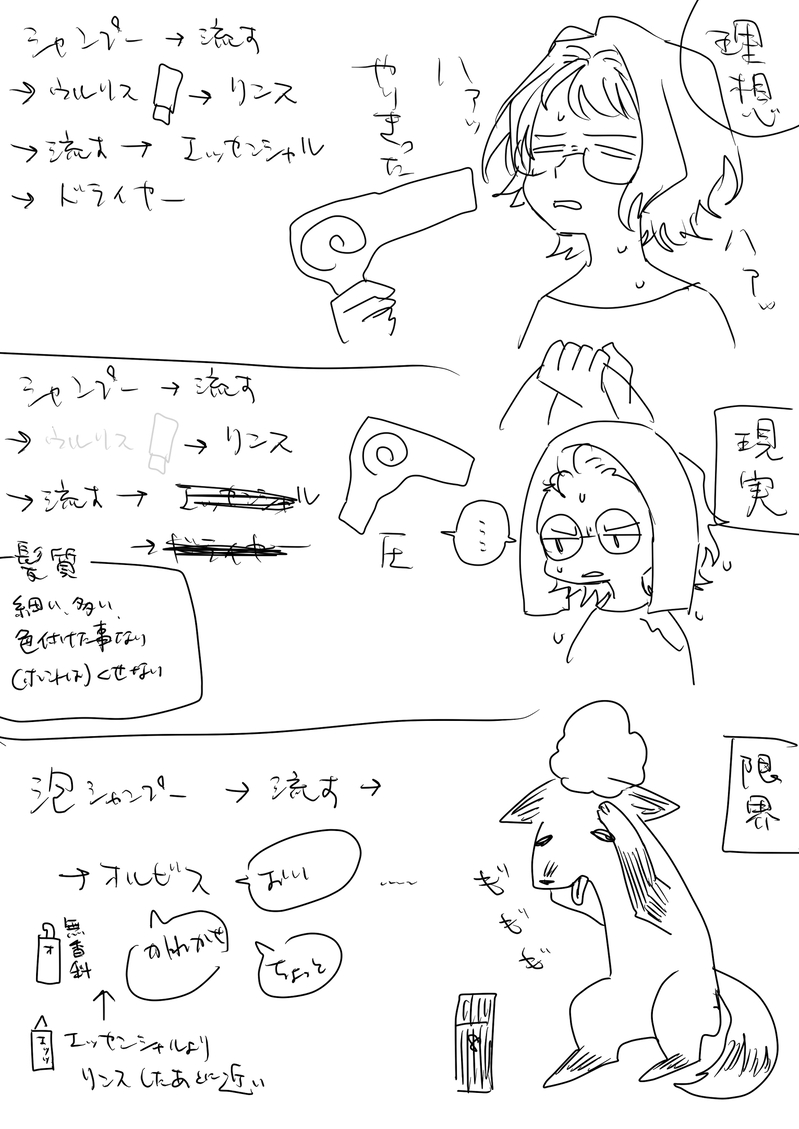 理想
シャンプー → 流す
→ ウルリス → リンス
→ 流す → エッセンシャル
→ ドライヤー
ハァッ
やりきった
ハァッ
現実
シャンプー → 流す
→ ウルリス → リンス
→ 流す → エッセンシャル
→ ドライヤー
圧
……
髪質
細い、多い、
色付けた事ない
くせない
限界
泡シャンプー → 流す →
→ オルビス
おい
ちょっと
ギ
ギ
ギ
オ
無香料
↑
エッセンシャルより
リンスしたあとに近い